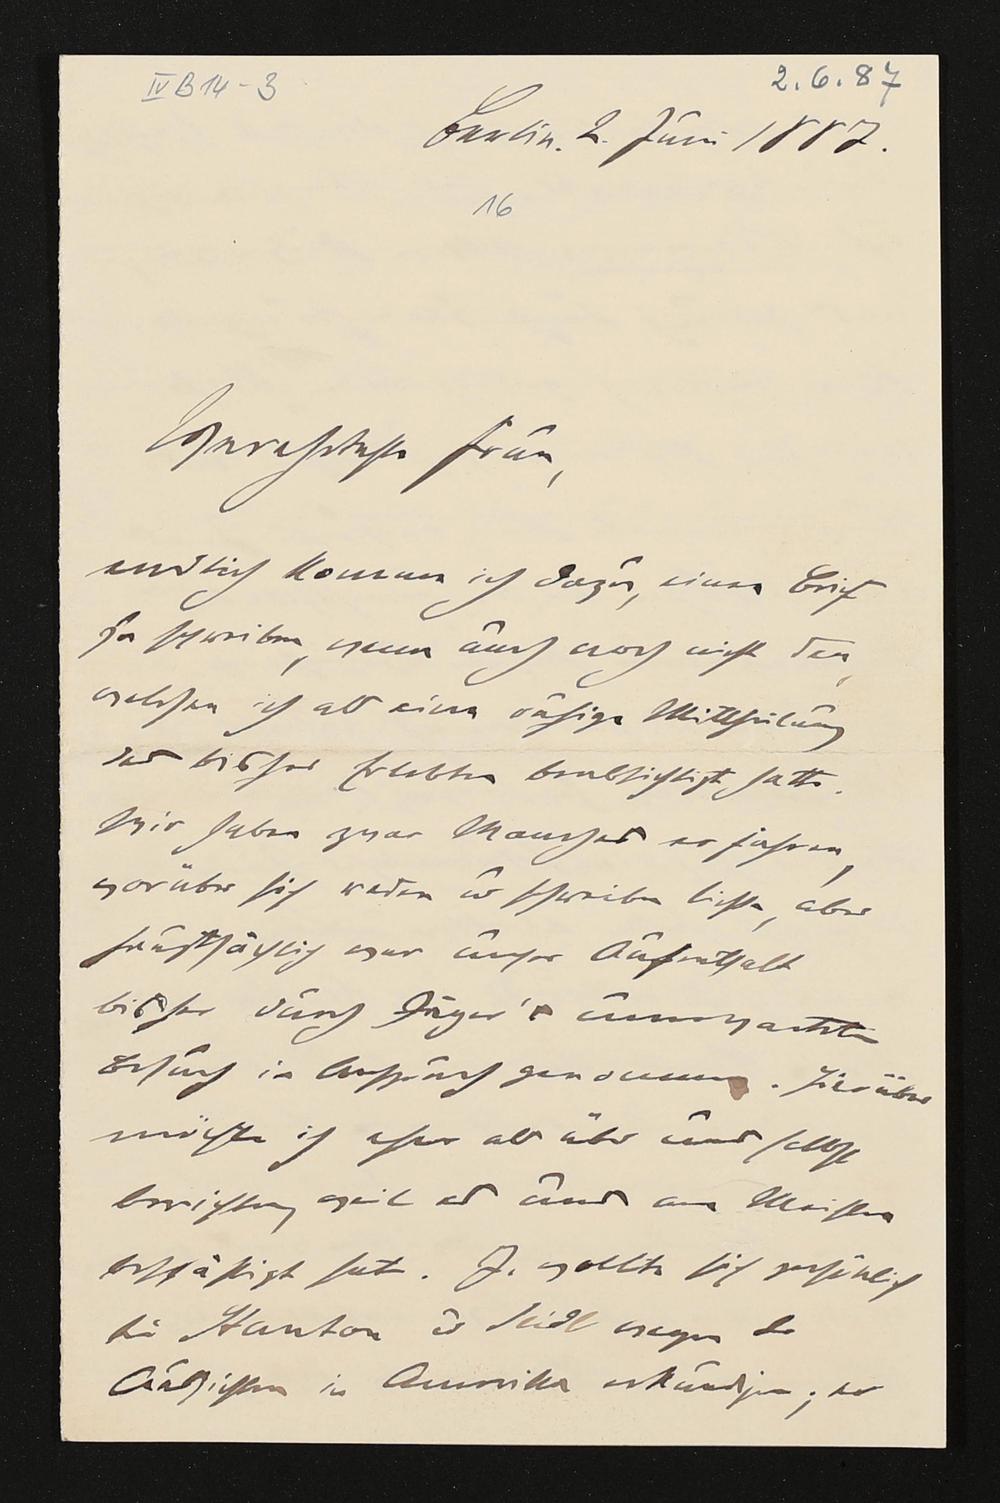 IV B 14 - 3
2.6.87
Berlin. 2. Juni 1887.
16
Verehrteste Frau,
endlich komme ich dazu, einen Brief
zu schreiben, wenn auch noch nicht den,
welchen ich als eine ruhige Mittheilung
des bisher Erlebten beabsichtigt hatte.
Wir haben zwar Manches erfahren,
worüber sich reden u schreiben ließe, aber
hauptsächlich war unser Aufenthalt
bisher durch Jäger's unerwarteten
Besuch in Anspruch genommen. Hierüber
möchte ich eher als über uns selbst
berichten, weil es uns am Meisten
beschäftigt hat. J. wollte sich persönlich
bei Stanton u Seidl wegen der
Aussichten in Amerika erkundigen; er